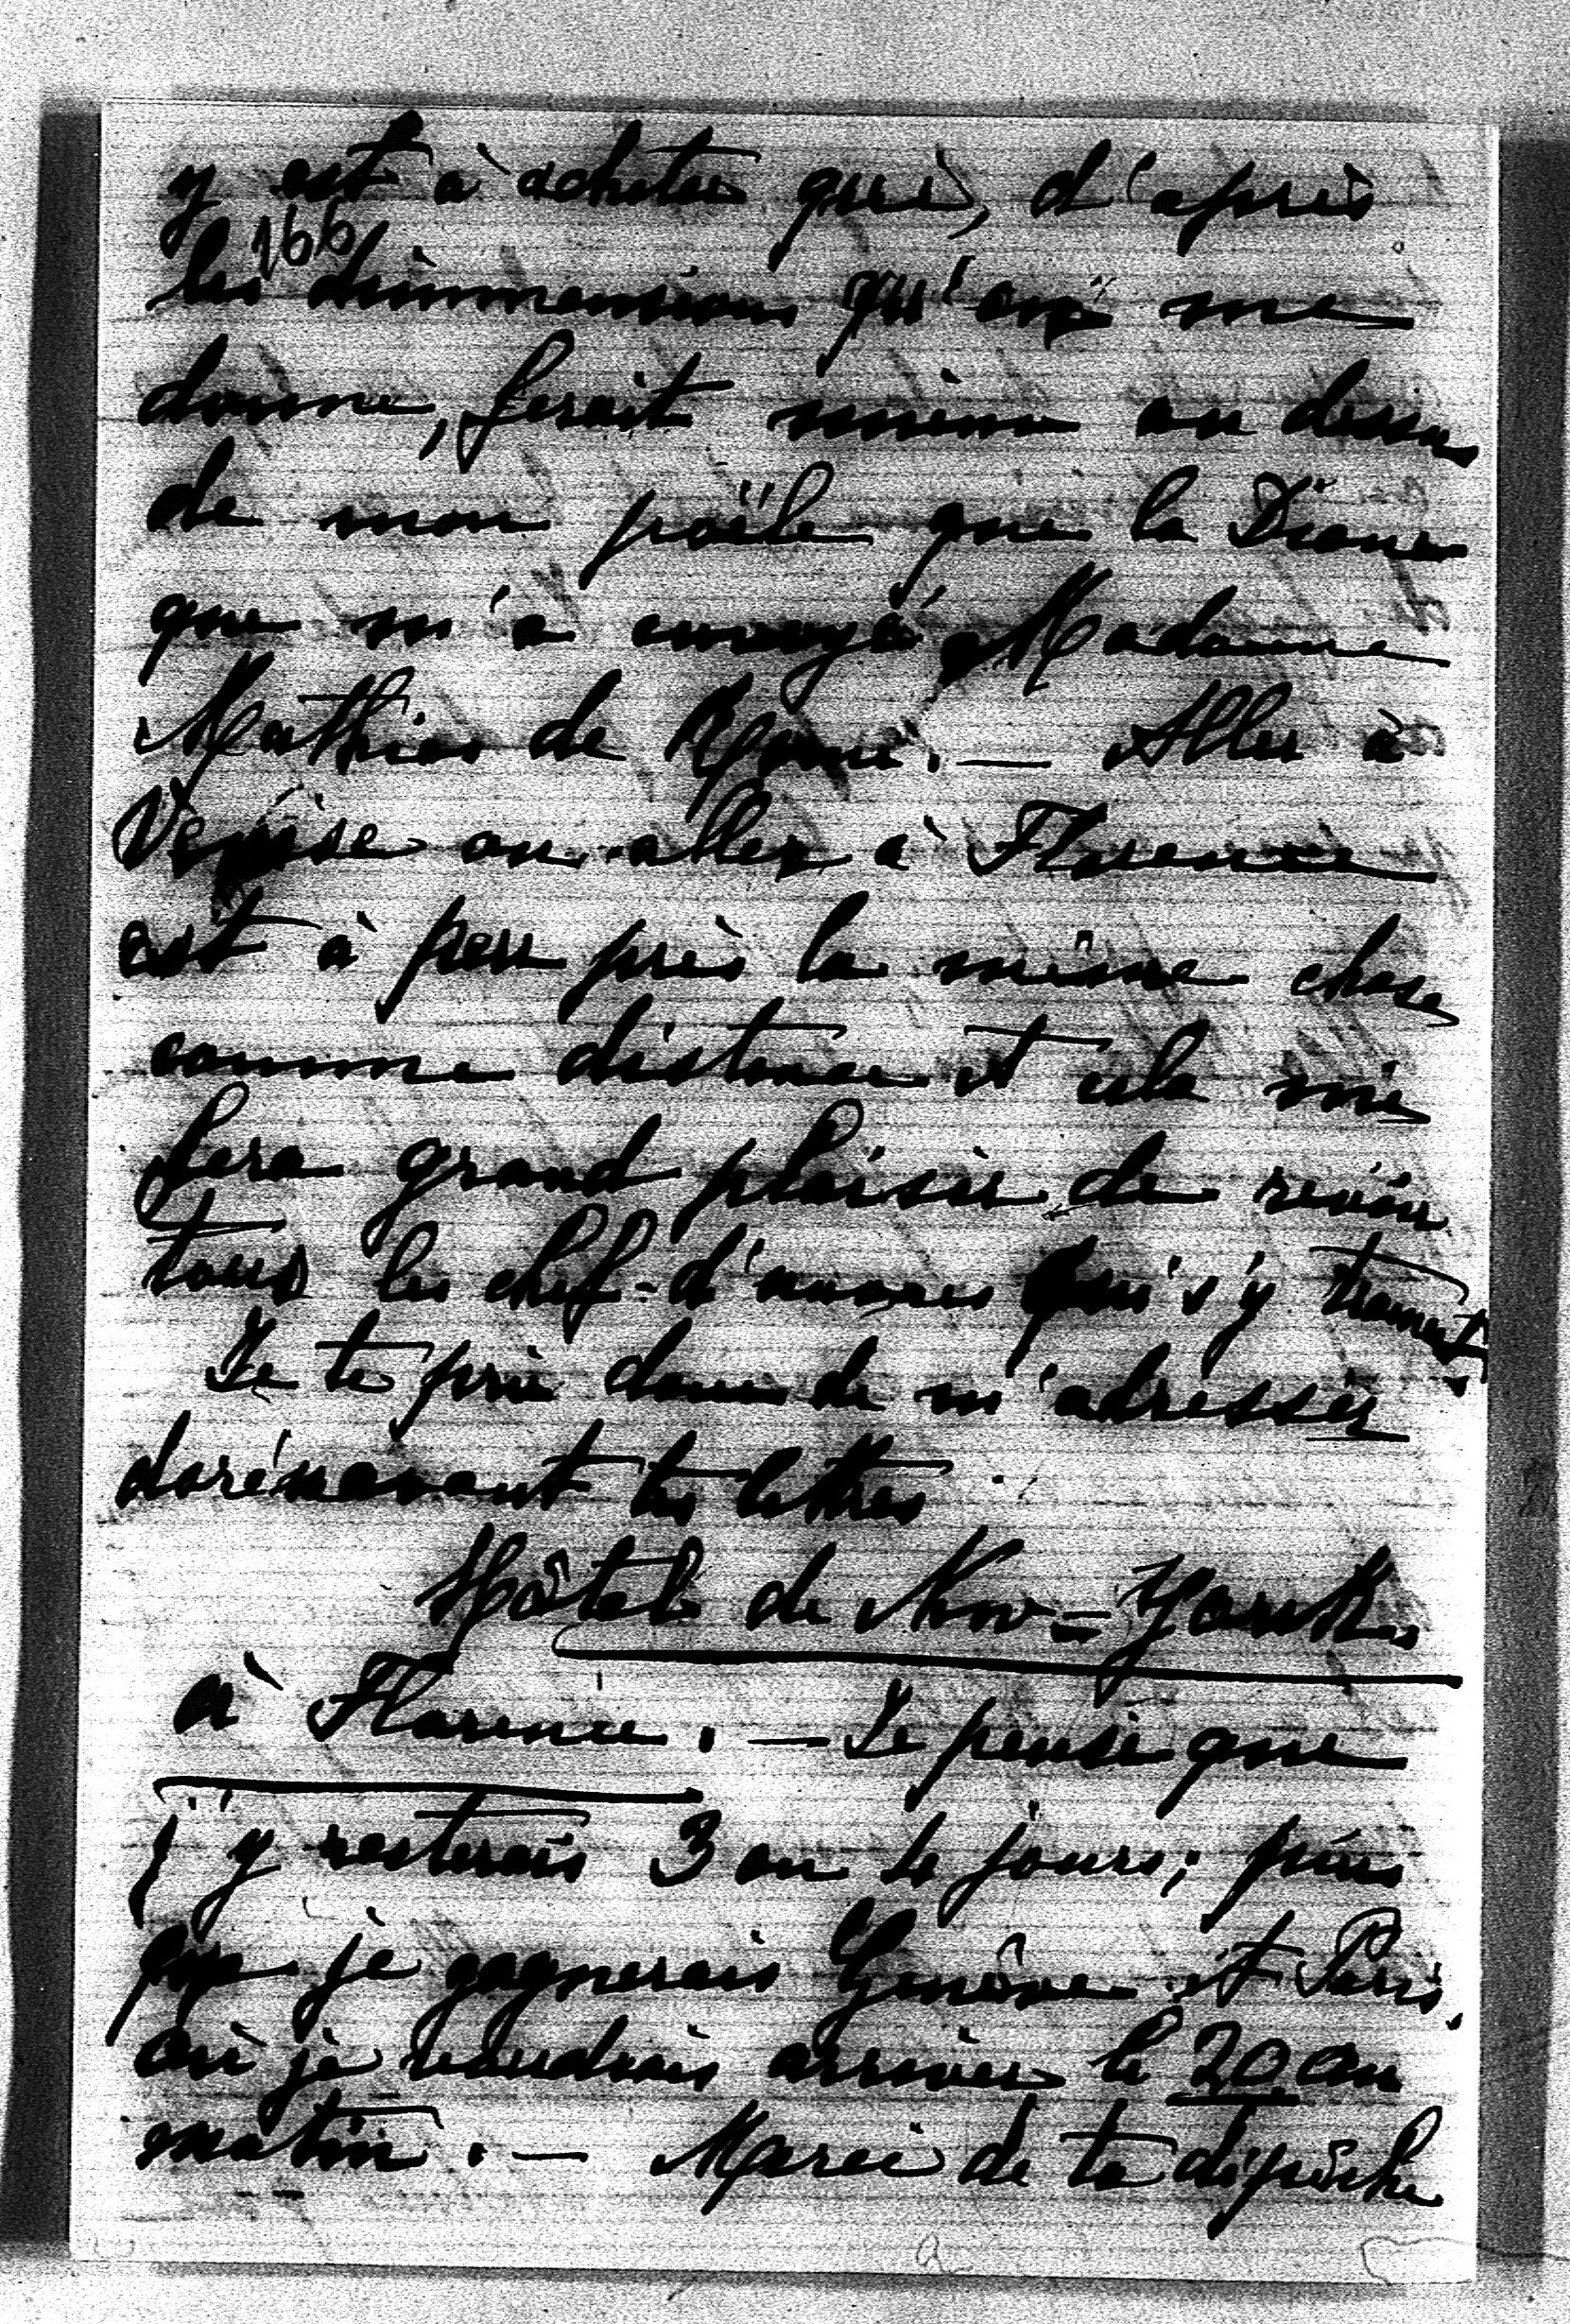 y est à acheter qui, d'après
166
les dimmensions qu'on me
donne, ferait mieux au dessus
de mon poële que la Diane
que m'a envoyé Madame
Mathias de Rome. — Aller à
Venise ou aller à Florence
est à peu près la même chose
comme distance et cela me
fera grand plaisir de revoir
tous les chef-d'œuvres qui s'y trouvent.
Je te prie donc de m'adresser
dorénavant tes lettres
Hôtel de New-York
à Florence. — Je pense que
j'y resterais 3 ou 4 jours; puis
je gagnerais Genève et Paris,
où je voudrais arriver le 20 au
matin. — Merci de ta dépêche